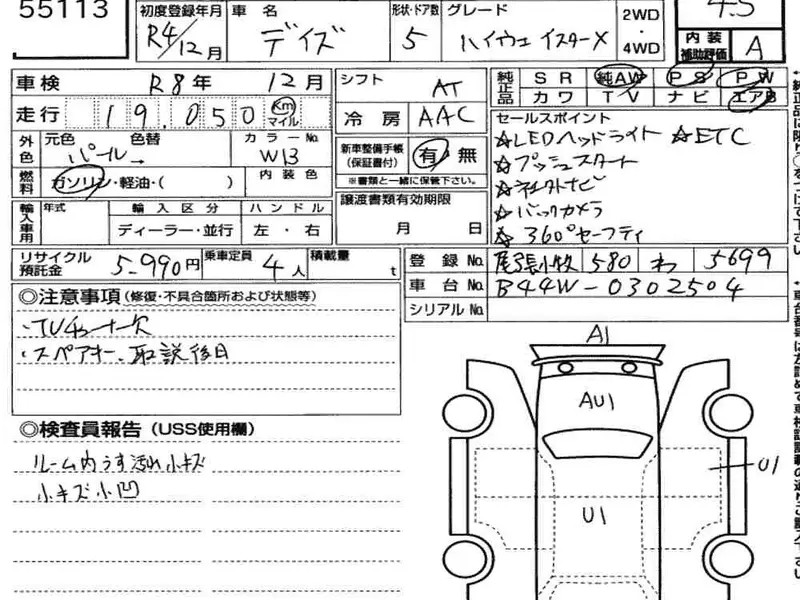 55113
初度登録年月 車名 形状・ドア数 グレード 2WD・4WD
R4/12月 デイズ 5 ハイウェイスターX
4.5
内装補助評価 A
車検 R8年 12月 シフト AT 純正品 SR 純AW PS PW
カワ TV ナビ エアB
走行 19,050 Km マイル 冷房 AAC
外色 元色 色替 カラーNo.
パール W13
新車整備手帳(保証書付) 有・無
※書類と一緒に保管下さい。
燃料 ガソリン・軽油・( ) 内装色
セールスポイント
☆LEDヘッドライト ☆ETC
☆プッシュスタート
☆社外ナビ
☆バックカメラ
☆360°セーフティ
輸入車用 年式 輸入区分 ハンドル
ディーラー・並行 左・右
譲渡書類有効期限
月 日
リサイクル預託金 5,990円 乗車定員 4人 積載量 t
登録No. 尾張小牧 580 わ 5699
車台No. B44W-0302504
シリアルNo.
◎注意事項(修復・不具合箇所および状態等)
・TVチューナー欠
・スペアキー、取説後日
◎検査員報告(USS使用欄)
ルーム内うす汚れ小キズ
小キズ小凹
A1
AU1
U1
U1